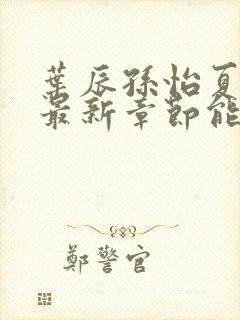 葉辰孫怡夏
最新章節能
鄭警官